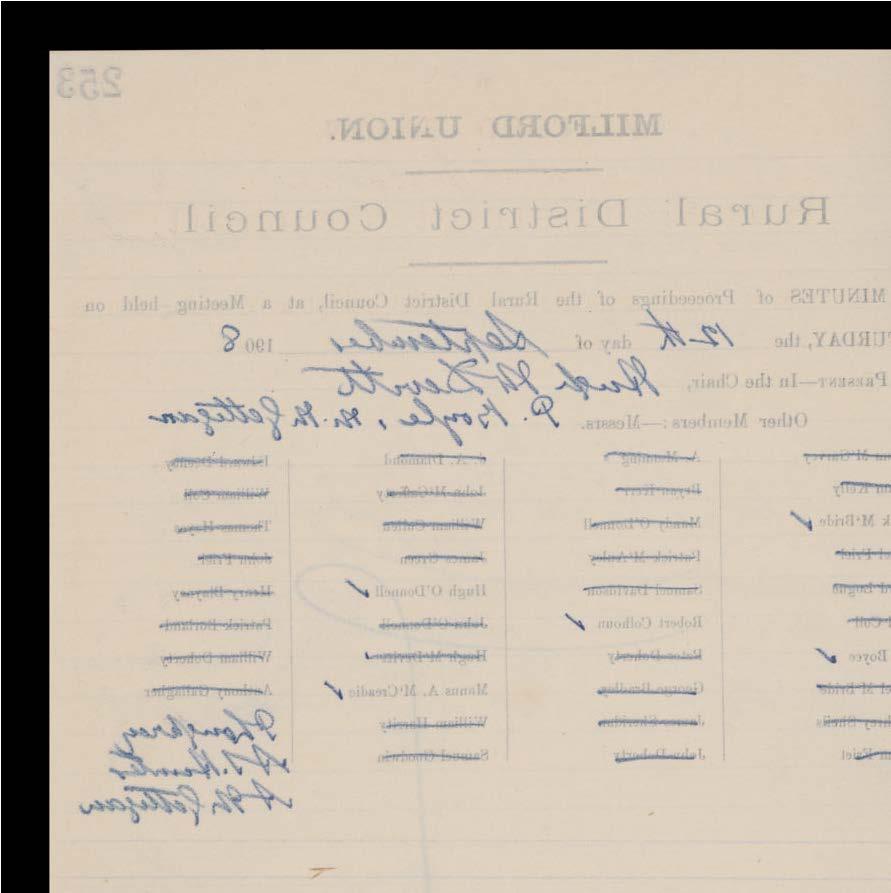 253
MILFORD UNION.
Rural District Council.
MINUTES of Proceedings of the Rural District Council, at a Meeting held on
TURDAY, the 12th day of September 1908
PRESENT—In the Chair, Hugh McDevitt
Other Members:—Messrs. P. Boyle, McGettigan
M'Garvey A. Manning J. A. Diamond Edward Deeney
Kelly Bryan Kerr John William Coll
k M'Bride O'Donnell William Cullen Thomas Hayes
Friel Patrick M'Auley James Green John Friel
Logue Samuel Davidson Hugh O'Donnell Henry Blayney
Coll Robert Colhoun John O'Donnell Patrick Borland
Boyce Peter Doherty Hugh M'Devitte William Doherty
M'Bride George Bradley Manus A. M'Creadie Anthony Gallagher
Sheils James Sheridan William
John Doherty Samuel Goodwin
Hunter
McGettigan